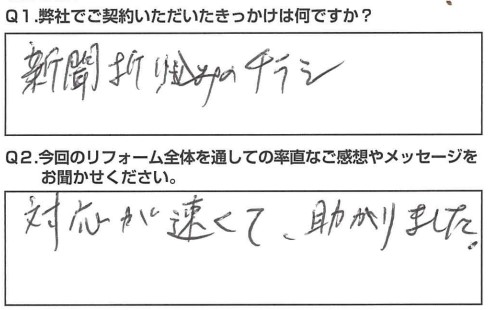 Q1.弊社でご契約いただいたきっかけは何ですか？
新聞折り込みのチラシ
Q2.今回のリフォーム全体を通しての率直なご感想やメッセージを
お聞かせください。
対応が速くて、助かりました。